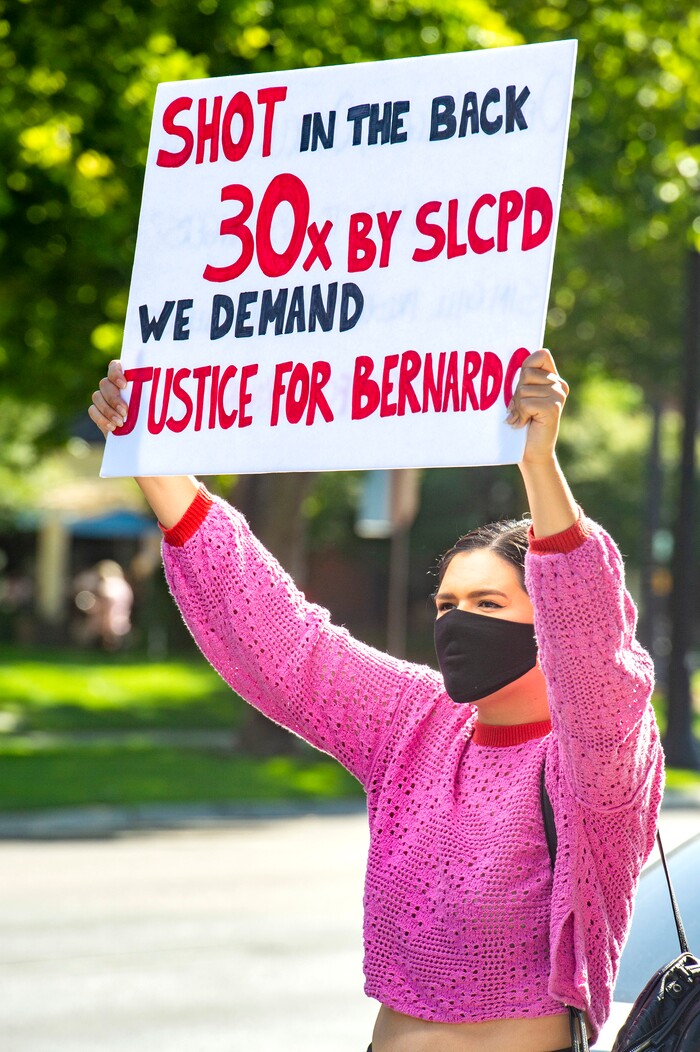 SHOT IN THE BACK
30x BY SLCPD
WE DEMAND
JUSTICE FOR BERNARDO